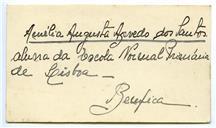 Amélia Augusta Azevedo dos Santos
aluna da Escola Normal Primária
de Lisboa —
Benfica —